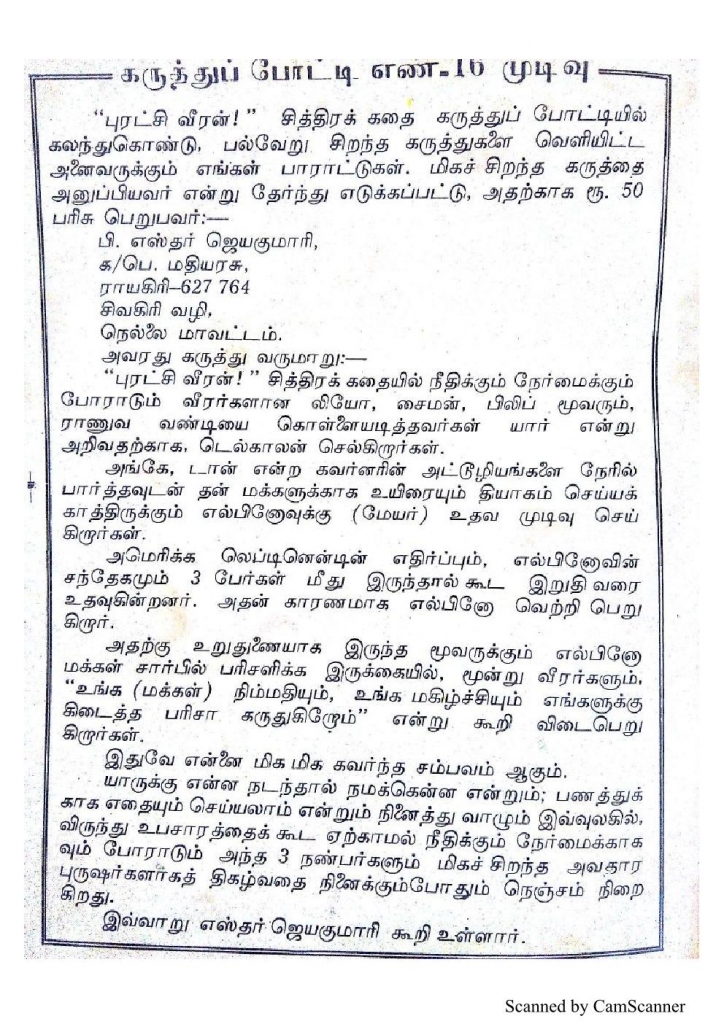 கருத்துப் போட்டி எண்-16 முடிவு
"புரட்சி வீரன்!" சித்திரக் கதை கருத்துப் போட்டியில்
கலந்துகொண்டு, பல்வேறு சிறந்த கருத்துகளை வெளியிட்ட
அனைவருக்கும் எங்கள் பாராட்டுகள். மிகச் சிறந்த கருத்தை
அனுப்பியவர் என்று தேர்ந்து எடுக்கப்பட்டு, அதற்காக ரூ. 50
பரிசு பெறுபவர்:—
பி. எஸ்தர் ஜெயகுமாரி,
க/பெ. மதியரசு,
ராயகிரி–627 764
சிவகிரி வழி,
நெல்லை மாவட்டம்.
அவரது கருத்து வருமாறு:—
"புரட்சி வீரன்!" சித்திரக் கதையில் நீதிக்கும் நேர்மைக்கும்
போராடும் வீரர்களான லியோ, சைமன், பிலிப் மூவரும்,
ராணுவ வண்டியை கொள்ளையடித்தவர்கள் யார் என்று
அறிவதற்காக, டெல்காலன் செல்கிறார்கள்.
அங்கே, டான் என்ற கவர்னரின் அட்டூழியங்களை நேரில்
பார்த்தவுடன் தன் மக்களுக்காக உயிரையும் தியாகம் செய்யக்
காத்திருக்கும் எல்பினோவுக்கு (மேயர்) உதவ முடிவு செய்
கிறார்கள்.
அமெரிக்க லெப்டினென்டின் எதிர்ப்பும், எல்பினோவின்
சந்தேகமும் 3 பேர்கள் மீது இருந்தால் கூட இறுதி வரை
உதவுகின்றனர். அதன் காரணமாக எல்பினோ வெற்றி பெறு
கிறார்.
அதற்கு உறுதுணையாக இருந்த மூவருக்கும் எல்பினோ
மக்கள் சார்பில் பரிசளிக்க இருக்கையில், மூன்று வீரர்களும்,
"உங்க (மக்கள்) நிம்மதியும், உங்க மகிழ்ச்சியும் எங்களுக்கு
கிடைத்த பரிசா கருதுகிறோம்" என்று கூறி விடைபெறு
கிறார்கள்.
இதுவே என்னை மிக மிக கவர்ந்த சம்பவம் ஆகும்.
யாருக்கு என்ன நடந்தால் நமக்கென்ன என்றும்; பணத்துக்
காக எதையும் செய்யலாம் என்றும் நினைத்து வாழும் இவ்வுலகில்,
விருந்து உபசாரத்தைக் கூட ஏற்காமல் நீதிக்கும் நேர்மைக்காக
வும் போராடும் அந்த 3 நண்பர்களும் மிகச் சிறந்த அவதார
புருஷர்களர்கத் திகழ்வதை நினைக்கும்போதும் நெஞ்சம் நிறை
கிறது.
இவ்வாறு எஸ்தர் ஜெயகுமாரி கூறி உள்ளார்.
Scanned by CamScanner